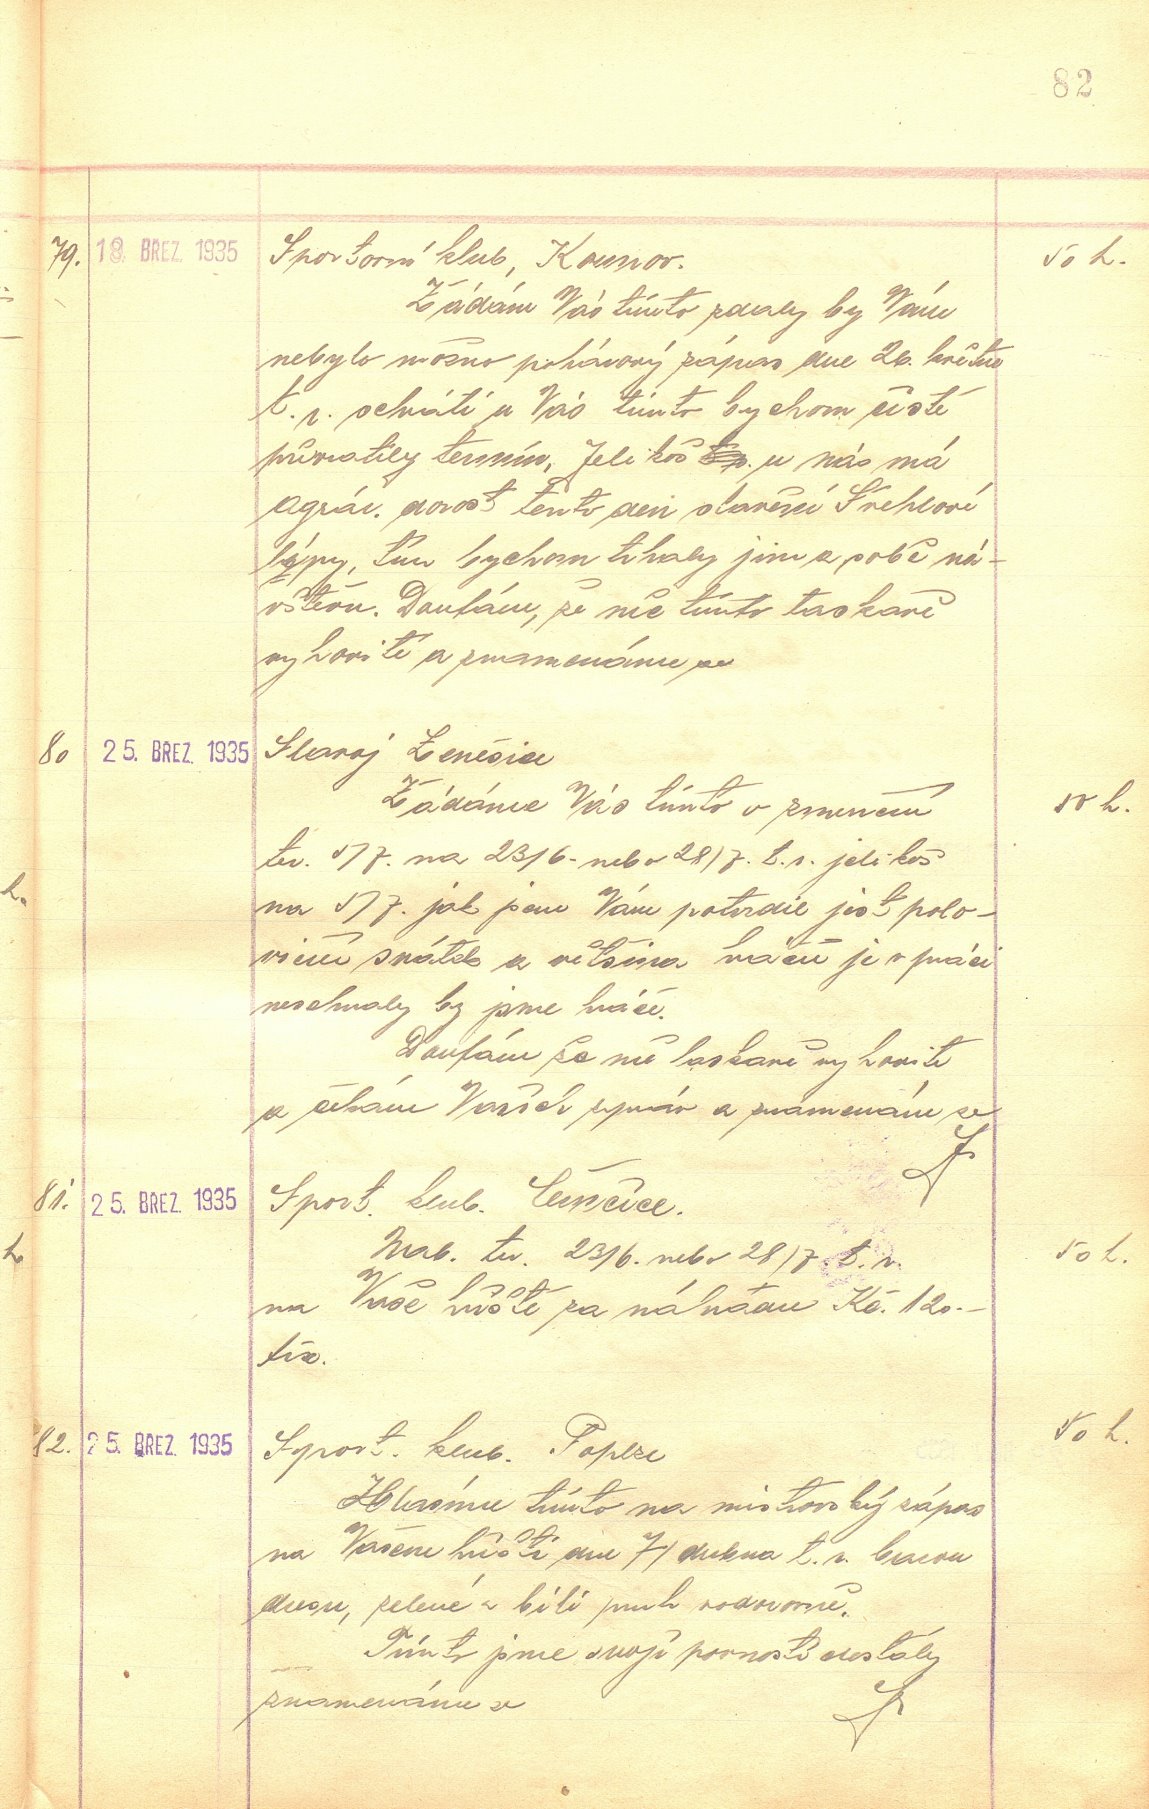 82
79. 19. BŘEZ. 1935 Sportovní klub, Kounov. 50 h.
Žádám Vás tímto zdaly by Vám
nebylo možno pohárový zápas dne 26. května
t. r. sehráti u Vás tímto bychom čistě
termín, Jelikož u nás má
agrár. dorost tento den
lípy, tím bychom trhaly jim a sobě ná-
vštěvu. Doufám, že mě tímto laskavě
vyhovíte a znamenáme se
80 25. BŘEZ. 1935 Slavoj Ženěcice
Žádáme Vás tímto o změnění 50 h.
ter. 5/7. na 23/6. nebo 28/7. t. r. jelikož
na 5/7. jak jsem Vám potvrdil jest polo-
viční svátek a většina hráčů je v práci
neschnaly by jsme hráče.
Doufám že mě laskavě vyhovíte
a čekám Vašich zpráv a znamenám se
81. 25. BŘEZ. 1935 Sport. klub.
Nab. ter. 23/6. nebo 28/7 t. r. 50 h.
na Vaše hřiště za náhradu Kč. 120.-
fix.
82. 25. BŘEZ. 1935 Sport. klub. 50 h.
Hlásíme tímto na mistrovský zápas
na Vašem hřišti dne 7/ dubna t. r. barvu
dresu, zelené a bílí pruh vodorovně.
Tímto jsme svojí povinosti
znamenáme se